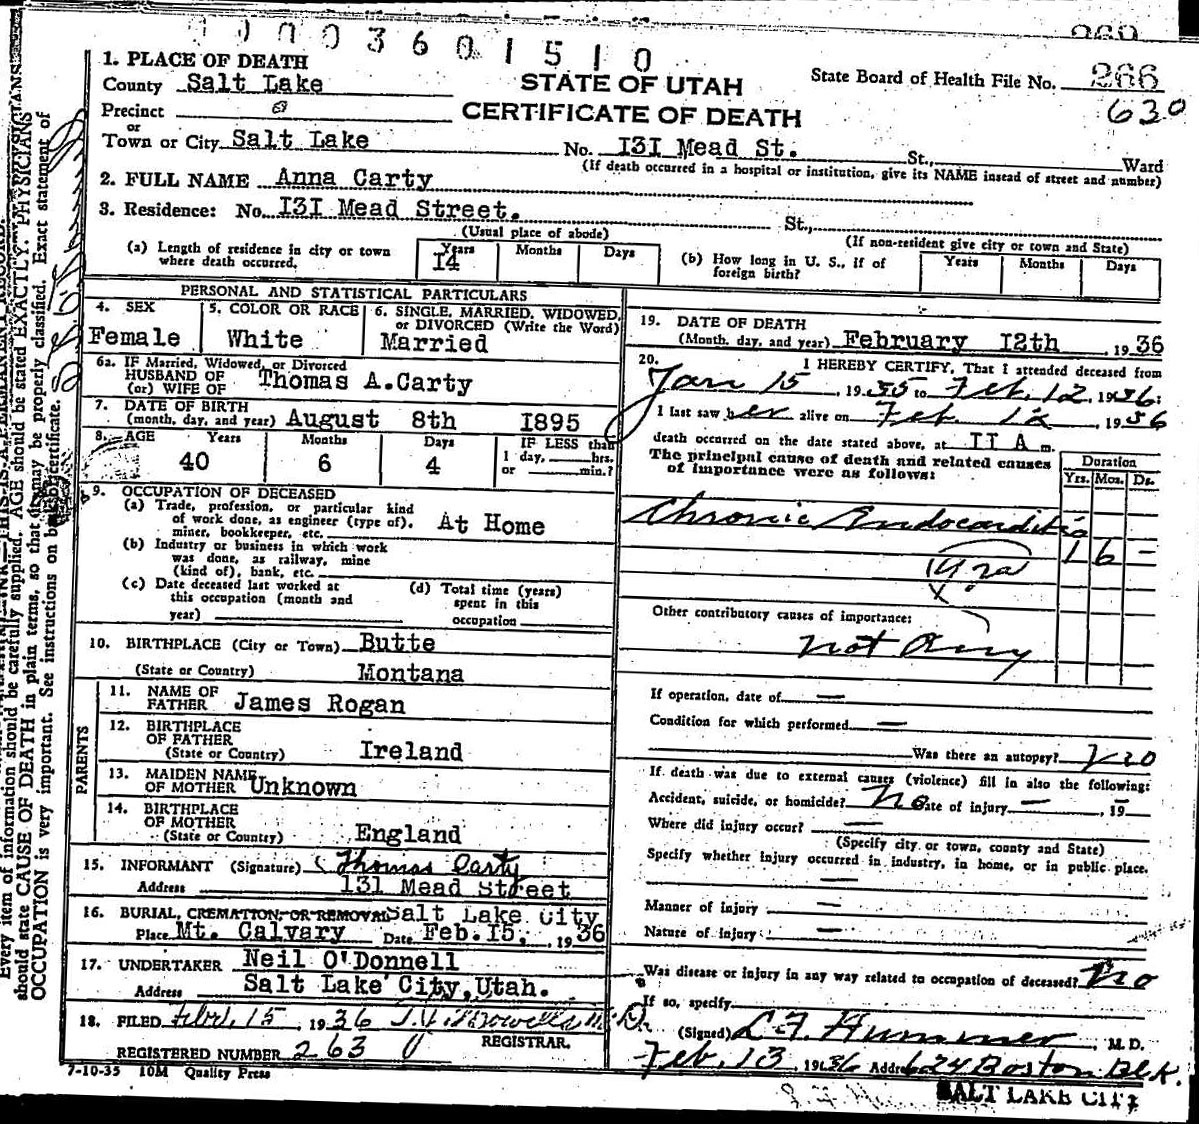 0003601510
269
1. PLACE OF DEATH
County Salt Lake
STATE OF UTAH
State Board of Health File No. 266
Precinct
CERTIFICATE OF DEATH
630
or
Town or City Salt Lake No. I3I Mead St. St., Ward
(If death occurred in a hospital or institution, give its NAME instead of street and number)
2. FULL NAME Anna Carty
3. Residence: No. I3I Mead Street. St.,
(Usual place of abode) (If non-resident give city or town and State)
(a) Length of residence in city or town where death occurred. Years I4 Months Days
(b) How long in U. S., if of foreign birth? Years Months Days
PERSONAL AND STATISTICAL PARTICULARS
4. SEX Female
5. COLOR OR RACE White
6. SINGLE, MARRIED, WIDOWED, or DIVORCED (Write the Word) Married
6a. IF Married, Widowed, or Divorced
HUSBAND OF
(or) WIFE OF Thomas A.Carty
7. DATE OF BIRTH
(month, day, and year) August 8th I895
8. AGE Years 40 Months 6 Days 4
IF LESS than
1 day, hrs.
or min.?
9. OCCUPATION OF DECEASED
(a) Trade, profession, or particular kind
of work done, as engineer (type of),
miner, bookkeeper, etc. At Home
(b) Industry or business in which work
was done, as railway, mine
(kind of), bank, etc.
(c) Date deceased last worked at
this occupation (month and
year)
(d) Total time (years)
spent in this
occupation
10. BIRTHPLACE (City or Town) Butte
(State or Country) Montana
PARENTS
11. NAME OF
FATHER James Rogan
12. BIRTHPLACE
OF FATHER
(State or Country) Ireland
13. MAIDEN NAME
OF MOTHER Unknown
14. BIRTHPLACE
OF MOTHER
(State or Country) England
15. INFORMANT (Signature) Thomas Carty
Address 131 Mead Street
16. BURIAL, CREMATION, OR REMOVAL Salt Lake City
Place Mt. Calvary Date Feb.I5, 1936
17. UNDERTAKER Neil O'Donnell
Address Salt Lake City,Utah.
18. FILED Feb. 15, 1936 M.D.
REGISTRAR.
REGISTERED NUMBER 263
7-10-35 10M Quality Press
19. DATE OF DEATH
(Month, day, and year) February I2th , 1936
20. I HEREBY CERTIFY, That I attended deceased from
Jan 15, 1935 to Feb. 12, 1936:
I last saw her alive on Feb 12, 1936
death occurred on the date stated above, at II A m.
The principal cause of death and related causes
of importance were as follows:
Duration
Yrs. Mos. Ds.
Chronic Endocarditis
1 6 –
Other contributory causes of importance:
not any
If operation, date of —
Condition for which performed —
Was there an autopsy? no
If death was due to external causes (violence) fill in also the following:
Accident, suicide, or homicide? No Date of injury — , 19 –
Where did injury occur? —
(Specify city or town, county and State)
Specify whether injury occurred in industry, in home, or in public place.
—
Manner of injury —
Nature of injury —
Was disease or injury in any way related to occupation of deceased? No
If so, specify
(Signed) L.F. Hummer , M. D.
Feb. 13 1936 Address 624 Boston Blk.
SALT LAKE CITY
Every item of information should be carefully supplied. AGE should be stated EXACTLY. PHYSICIANS
should state CAUSE OF DEATH in plain terms, so that it may be properly classified. Exact statement of
OCCUPATION is very important. See instructions on back of certificate.